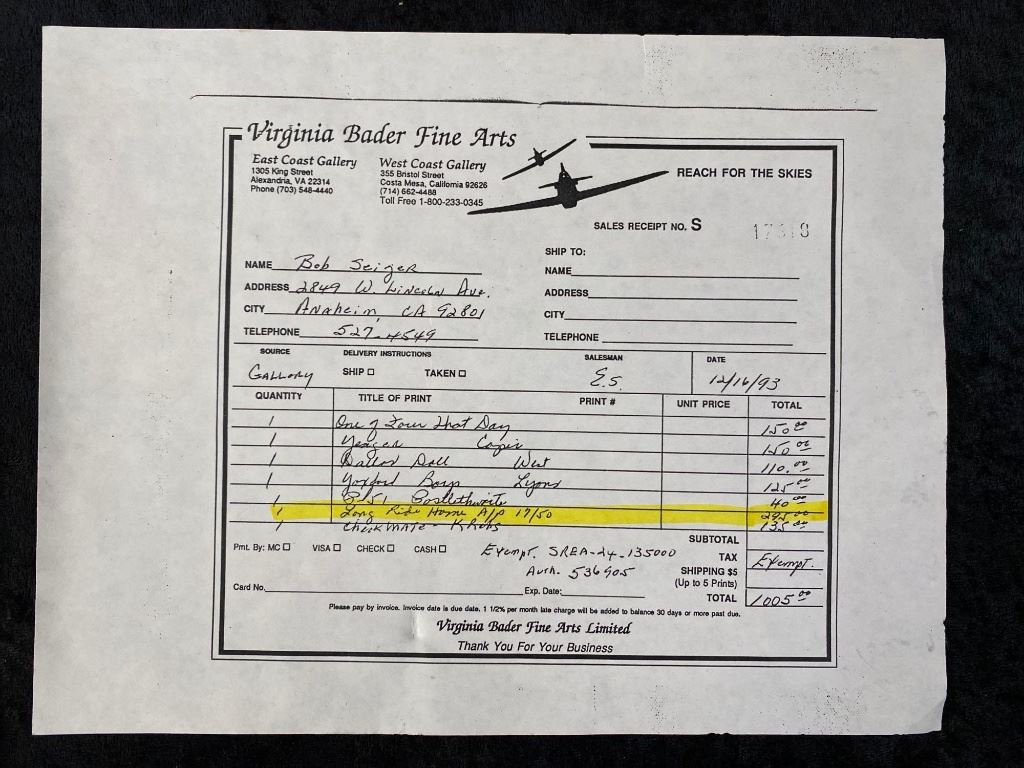 Virginia Bader Fine Arts
East Coast Gallery
1305 King Street
Alexandria, VA 22314
Phone (703) 548-4440
West Coast Gallery
355 Bristol Street
Costa Mesa, California 92626
(714) 662-4488
Toll Free 1-800-233-0345
REACH FOR THE SKIES
SALES RECEIPT NO. S
NAME Bob Seizer
ADDRESS 2849 W. Lincoln Ave.
CITY Anaheim, CA 92801
TELEPHONE 527-4549
SHIP TO:
NAME
ADDRESS
CITY
TELEPHONE
SOURCE DELIVERY INSTRUCTIONS SALESMAN DATE
GALLORY SHIP ☐ TAKEN ☐ E.S. 12/16/93
QUANTITY TITLE OF PRINT PRINT # UNIT PRICE TOTAL
1 One of Four That Day 150.00
1 Yeager 150.00
1 Dallas Doll West 110.00
1 Yoxford Boys Lyons 125.00
1 P-51 Postlethwaite 40.00
1 Long Ride Home A/P 17/50 295.00
1 Checkmate - 135.00
SUBTOTAL
Pmt. By: MC ☐ VISA ☐ CHECK ☐ CASH ☐ Exempt. SREA-24-135000
TAX Exempt.
Auth. 536905
SHIPPING $5
(Up to 5 Prints)
Card No. Exp. Date:
TOTAL 1005.00
Please pay by invoice. Invoice date is due date. 1 1/2% per month late charge will be added to balance 30 days or more past due.
Virginia Bader Fine Arts Limited
Thank You For Your Business